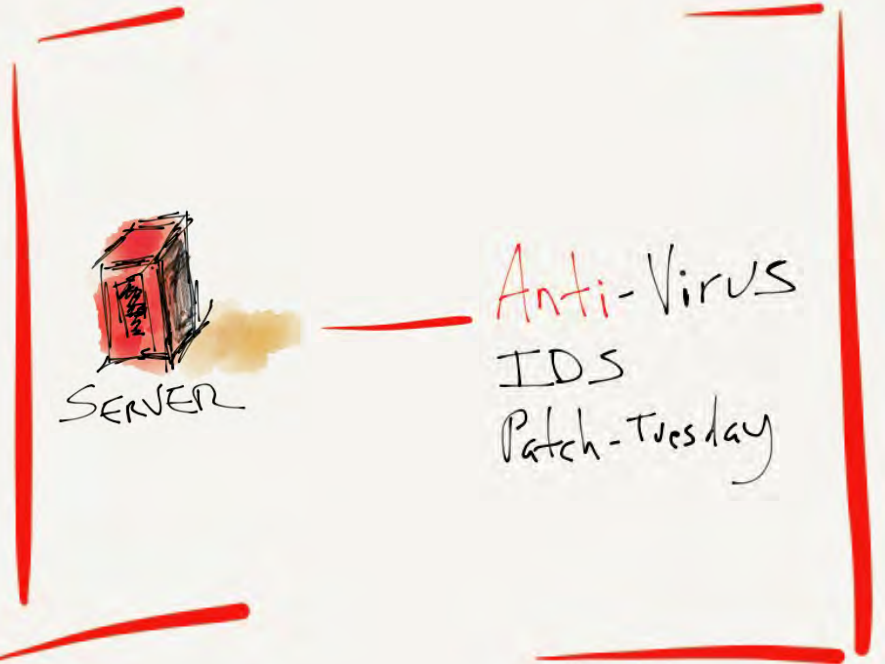 SERVER
Anti-Virus
IDS
Patch-Tuesday